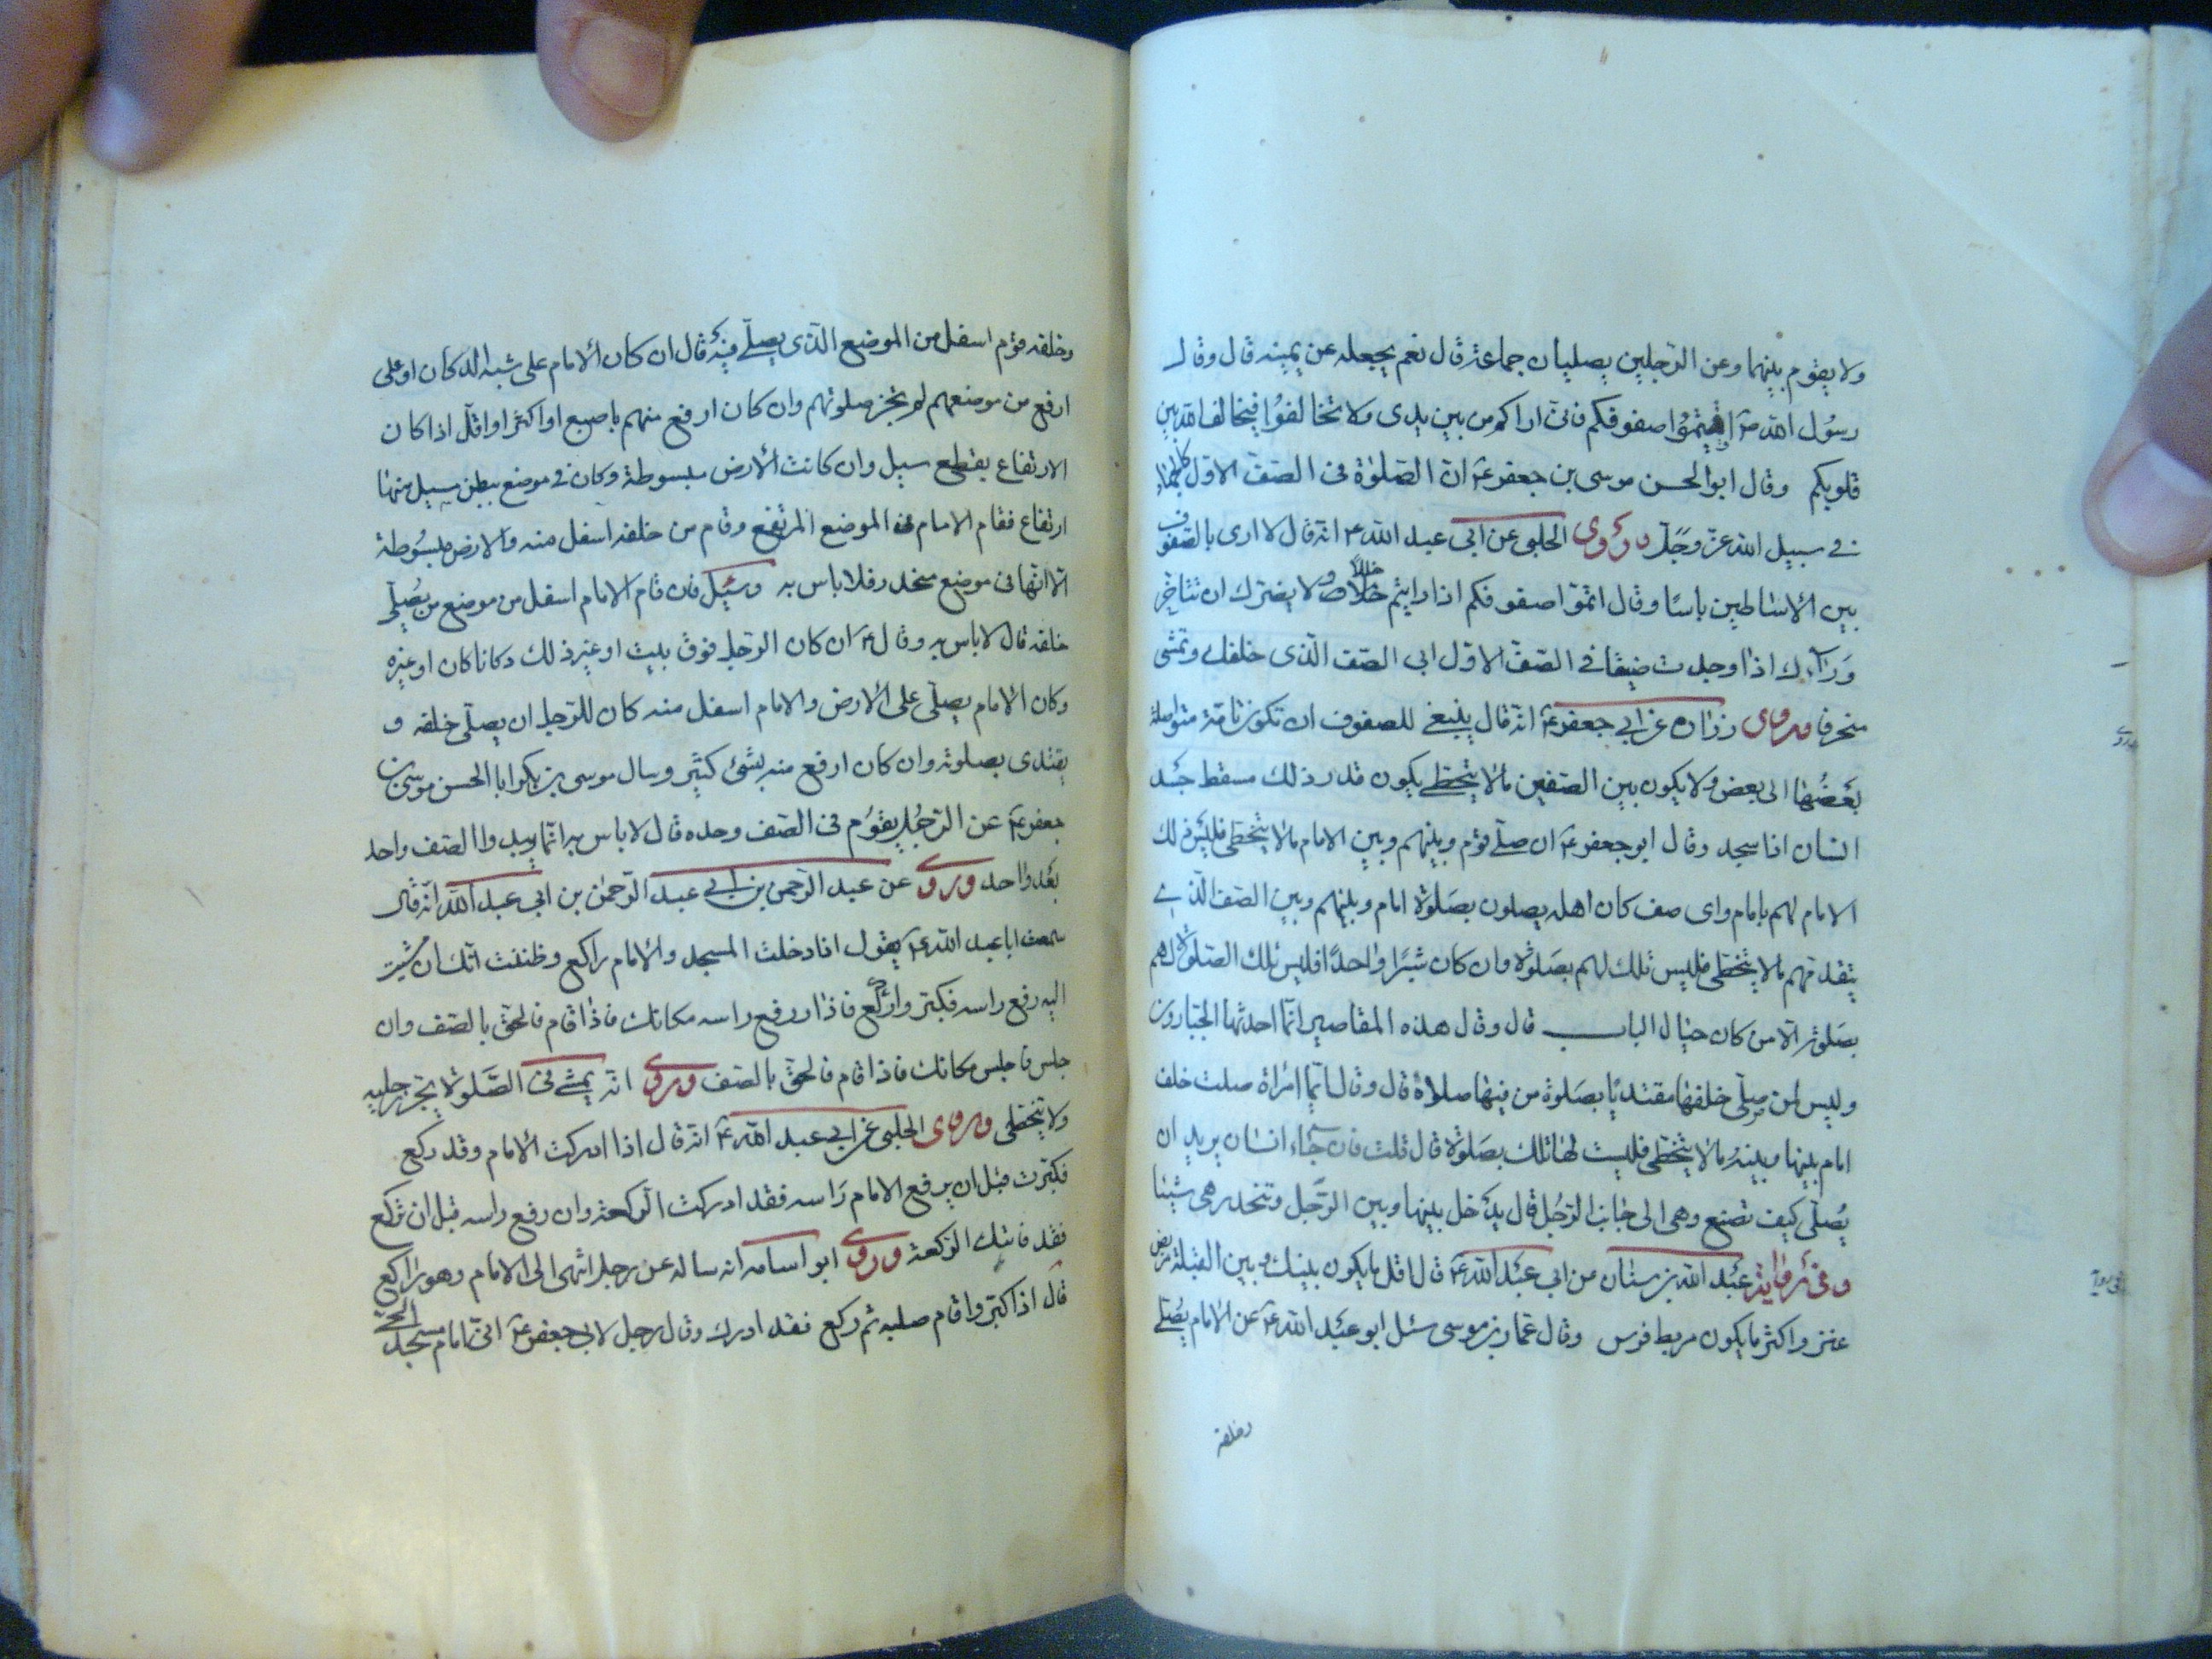 ولا يقوم بينهما وعن الرجلين يصليان جماعة قال نعم يجعله عن يمينه قال وقال
رسول الله ص اقيموا صفوفكم فانى اراكم من بين يدى ولا تخالفوا فيخالف الله بين
قلوبكم وقال ابو الحسن موسى بن جعفر ع ان الصلوة فى الصف الاول كالجهاد
فى سبيل الله عز وجل وروى الحلبى عن ابى عبد الله ع انه قال لا ارى بالصفوف
بين الاساطين باسا وقال اتموا صفوفكم اذا رايتم خللا ولا يضرك ان تتاخر
وراءك اذا وجدت ضيقا فى الصف الاول الى الصف الذى خلفك وتمشى
منحرفا وروى زرارة عن ابى جعفر ع انه قال ينبغى للصفوف ان تكون تامة متواصلة
بعضها الى بعض ولا يكون بين الصفين ما لا يتخطى يكون قدر ذلك مسقط جسد
انسان اذا سجد وقال ابو جعفر ع ان صلى قوم وبينهم وبين الامام ما لا يتخطى فليس ذلك
الامام لهم بامام واى صف كان اهله يصلون بصلوة امام وبينهم وبين الصف الذى
يتقدمهم ما لا يتخطى فليس تلك لهم بصلوة وان كان شبرا واحدا فليس تلك الصلوة لهم
بصلوة الا من كان حيال الباب قال وقال هذه المقاصير انما احدثها الجبارون
وليس لمن صلى خلفها مقتديا بصلوة من فيها صلاة قال وقال ايما امراة صلت خلف
امام بينها وبينه ما لا يتخطى فليست لها تلك بصلوة قال قلت فان جاء انسان يريد ان
يصلى كيف تصنع وهى الى جانب الرجل قال يدخل بينها وبين الرجل وتنحدر هى شيئا
وفى رواية عبد الله بن سنان عن ابى عبد الله ع قال اقل ما يكون بينك وبين القبلة مربض
عنز واكثر ما يكون مربط فرس وقال عمار بن موسى سئل ابو عبد الله ع عن الامام يصلى
وخلفه
وخلفه قوم اسفل من الموضع الذى يصلى فيه قال ان كان الامام على شبه الدكان او على
ارفع من موضعهم لم تجز صلوتهم وان كان ارفع منهم باصبع او اكثر او اقل اذا كان
الارتفاع بقطع سيل وان كانت الارض مبسوطة وكان فى موضع ببطن مسيل منها
ارتفاع فقام الامام فى الموضع المرتفع وقام من خلفه اسفل منه والارض مبسوطة
الا انها فى موضع منحدر فلا باس به وسئل فان قام الامام اسفل من موضع من يصلى
خلفه قال لا باس به وقال ع ان كان الرجل فوق بيت او غير ذلك دكانا كان او غيره
وكان الامام يصلى على الارض والامام اسفل منه كان للرجل ان يصلى خلفه و
يقتدى بصلوته وان كان ارفع منه بشئ كثير وسال موسى بن بكر ابا الحسن موسى بن
جعفر ع عن الرجل يقوم فى الصف وحده قال لا باس به انما يبدوا الصف واحد
بعد واحد وروى عن عبد الرحمن بن ابى عبد الرحمن بن ابى عبد الله انه قال
سمعت ابا عبد الله ع يقول اذا دخلت المسجد والامام راكع وظننت انك ان مشيت
اليه رفع راسه فكبر واركع فاذا رفع راسه مكانك فاذا قام فالحق بالصف وان
جلس فاجلس مكانك فاذا قام فالحق بالصف وروى انه يمشى فى الصلوة يجر رجليه
ولا يتخطى وروى الحلبى عن ابى عبد الله ع انه قال اذا ادركت الامام وقد ركع
فكبرت قبل ان يرفع الامام راسه فقد ادركت الركعة وان رفع راسه قبل ان تركع
فقد فاتتك الركعة وروى ابو اسامه انه ساله عن رجل انتهى الى الامام وهو راكع
قال اذا كبر واقام صلبه ثم ركع فقد ادرك وقال رجل لابى جعفر ع انى امام مسجد الحى